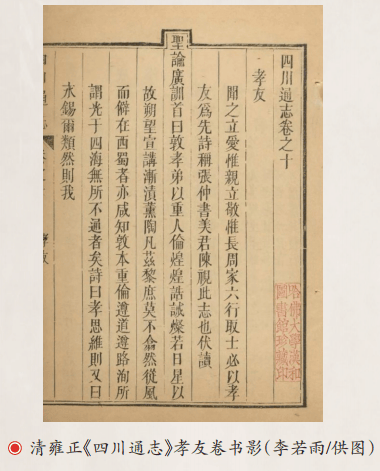 四川通志卷之十
孝友
聞之立愛惟親立敬惟長周家六行取士必以孝
友爲先詩稱張仲書美君陳視此志也伏讀
聖諭廣訓首曰敦孝弟以重人倫煌煌誥誡燦若日星以
故朔望宣講漸漬薰陶凡茲黎庶莫不翕然從風
而僻在西蜀者亦咸知敦本重倫遵道遵路洵所
謂光于四海無所不通者矣詩曰孝思維則又曰
永錫爾類然則我
四川通志
孝友
哈佛大學漢和
圖書館珍藏印
清雍正《四川通志》孝友卷书影(李若雨/供图)